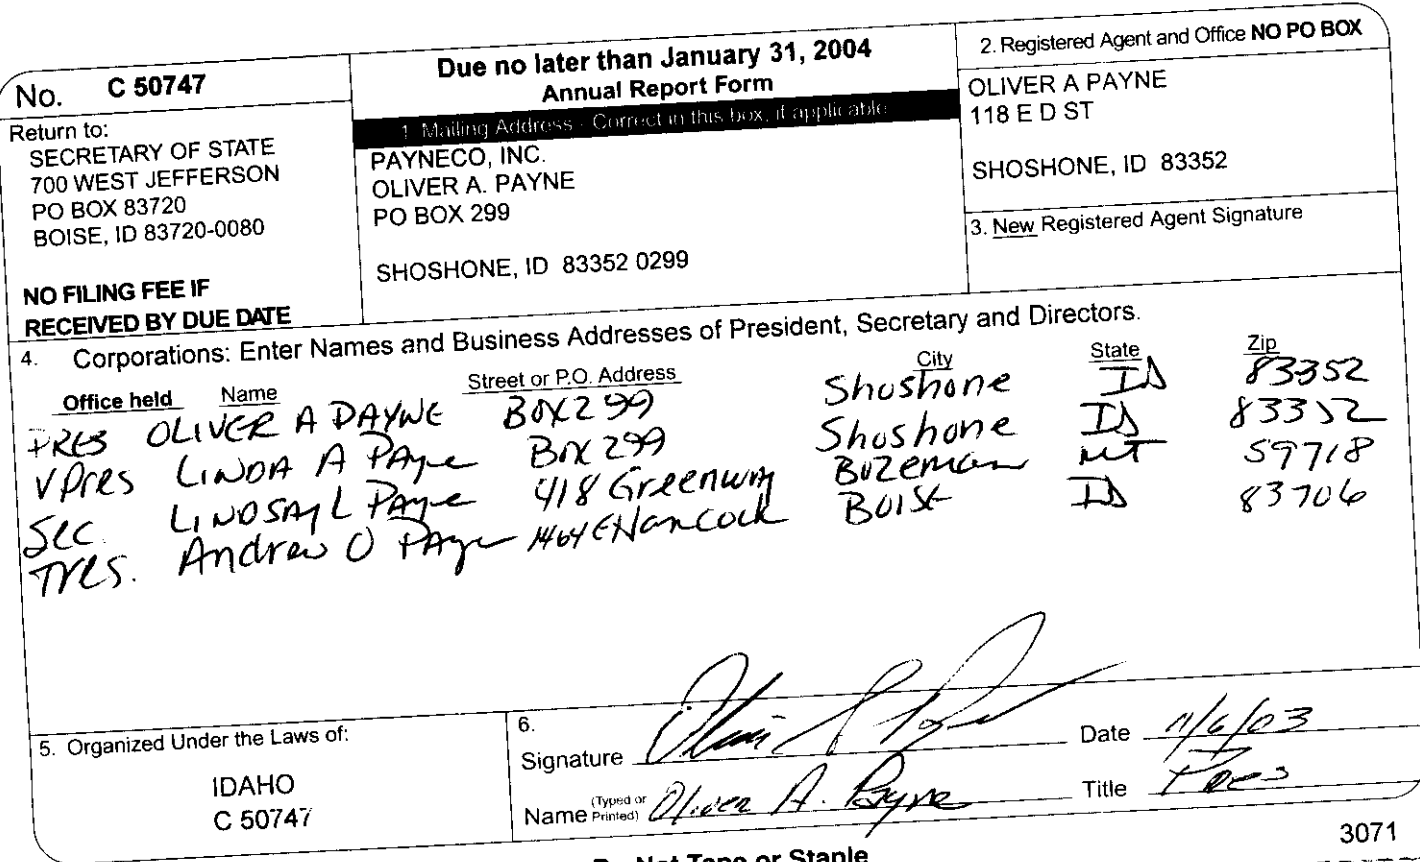 No. C 50747
Return to:
SECRETARY OF STATE
700 WEST JEFFERSON
PO BOX 83720
BOISE, ID 83720-0080
NO FILING FEE IF
RECEIVED BY DUE DATE
Due no later than January 31, 2004
Annual Report Form
1. Mailing Address - Correct in this box, if applicable
PAYNECO, INC.
OLIVER A. PAYNE
PO BOX 299
SHOSHONE, ID 83352 0299
2. Registered Agent and Office NO PO BOX
OLIVER A PAYNE
118 E D ST
SHOSHONE, ID 83352
3. New Registered Agent Signature
4. Corporations: Enter Names and Business Addresses of President, Secretary and Directors.
Office held Name Street or P.O. Address City State Zip
PRES OLIVER A PAYNE BOX 299 Shoshone ID 83352
V Pres LINDA A PAyne Box 299 Shoshone ID 83352
Sec. LINDSAY L PAyne 418 Greenway Bozeman MT 59718
Tres. Andrew O PAyne 1464 E Hancock BOISE ID 83706
5. Organized Under the Laws of:
IDAHO
C 50747
6.
Signature Oliver A Payne Date 11/6/03
Name (Typed or Printed) Oliver A. Payne Title Pres
3071
Do Not Tape or Staple